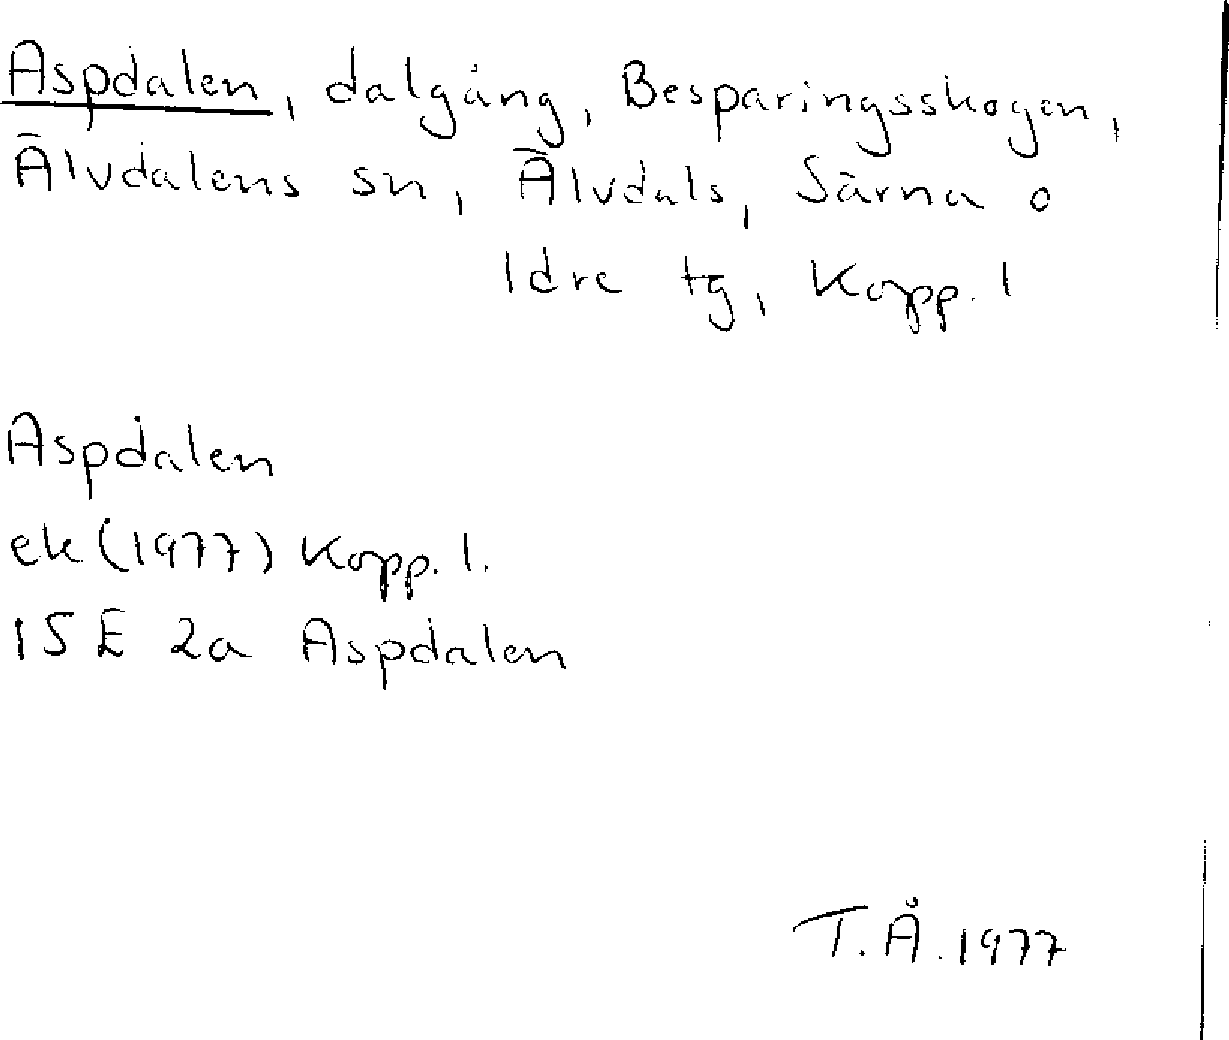 Aspdalen, dalgång, Besparingsskogen,
Älvdalens sn, Älvdals, Särna o
Idre tg, Kopp. l
Aspdalen
ek (1977) Kopp. l.
15 E 2a Aspdalen
T.Å. 1977